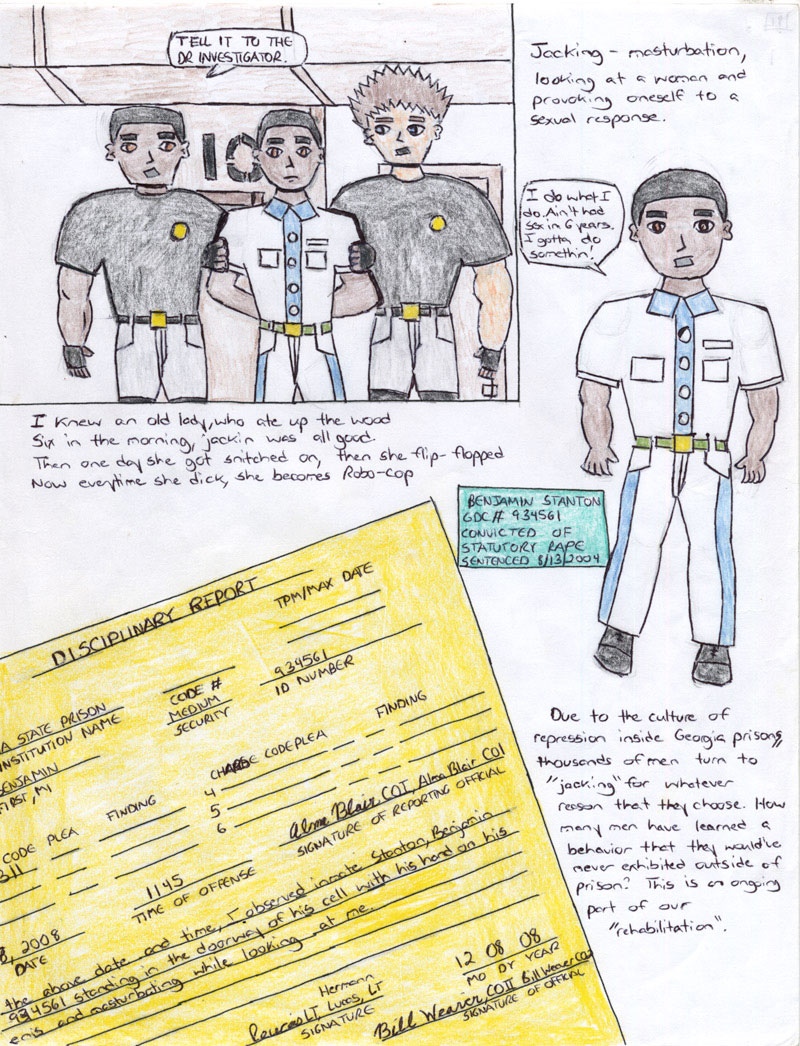 TELL IT TO THE
DR INVESTIGATOR.
10
Jacking - masturbation,
looking at a woman and
provoking oneself to a
sexual response.
I do what I
do. Ain't had
sex in 6 years.
I gotta do
somethin'!
I knew an old lady, who ate up the wood
Six in the morning, jackin was all good.
Then one day she got snitched on, then she flip-flopped
Now everytime she dick, she becomes Robo-cop
BENJAMIN STANTON
GDC# 934561
CONVICTED OF
STATUTORY RAPE
SENTENCED 8/13/2004
DISCIPLINARY REPORT
TPM/MAX DATE
A STATE PRISON
INSTITUTION NAME
CODE #
MEDIUM
SECURITY
934561
ID NUMBER
BENJAMIN
FIRST, MI
CODE PLEA
FINDING
CHARGE CODE PLEA
FINDING
4
5
6
311
Alma Blair COI, Alma Blair COI
SIGNATURE OF REPORTING OFFICIAL
, 2008
DATE
1145
TIME OF OFFENSE
the above date and time, I observed inmate Stanton, Benjamin
934561 standing in the doorway of his cell with his hand on his
enis and masturbating while looking at me.
Hermann
LT, Lucas, LT
SIGNATURE
12 08 08
MO DY YEAR
Bill Weaver, COII Bill Weaver COII
SIGNATURE OF OFFICIAL
Due to the culture of
repression inside Georgia prisons,
thousands of men turn to
"jacking" for whatever
reason that they choose. How
many men have learned a
behavior that they would've
never exhibited outside of
prison? This is an ongoing
part of our
"rehabilitation".